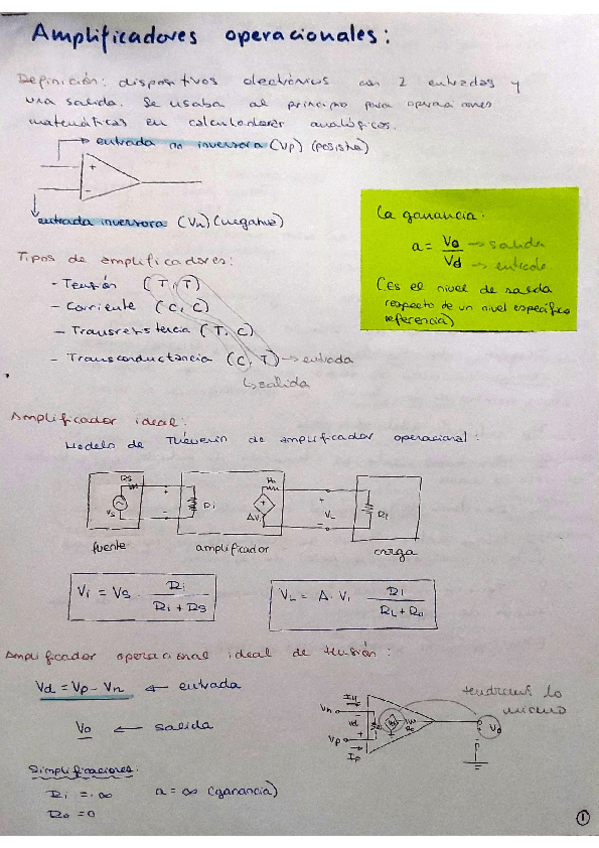 Amplificadores operacionales:
Definición: dispositivos electrónicos con 2 entradas y
una salida. Se usaba al principio para operaciones
matemáticas en calculadoras analógicas.
entrada no inversora (Vp) (positiva)
+
-
entrada inversora (Vn) (negativa)
La ganancia:
a = Vo → salida
Vd → entrada
(Es el nivel de salida
respecto de un nivel específico
referencia)
Tipos de amplificadores:
- Tensión (T, T)
- Corriente (C, C)
- Transresistencia (T, C)
- Transconductancia (C, T) → entrada
↳ salida
Amplificador ideal:
Modelo de Thévenin de amplificador operacional:
Rs
Vs
+
-
Ri
AVi
+
VL
-
fuente
amplificador
carga
Vi = Vs · Ri / Ri + Rs
VL = A · Vi · Rl / RL + Ro
Amplificador operacional ideal de tensión:
Vd = Vp - Vn ← entrada
Vo ← salida
tendremos lo
mismo
Vn
Vd
Vp
+
Ip
Vo
Simplificaciones:
Ri = ∞ a = ∞ (ganancia)
Ro = 0
1